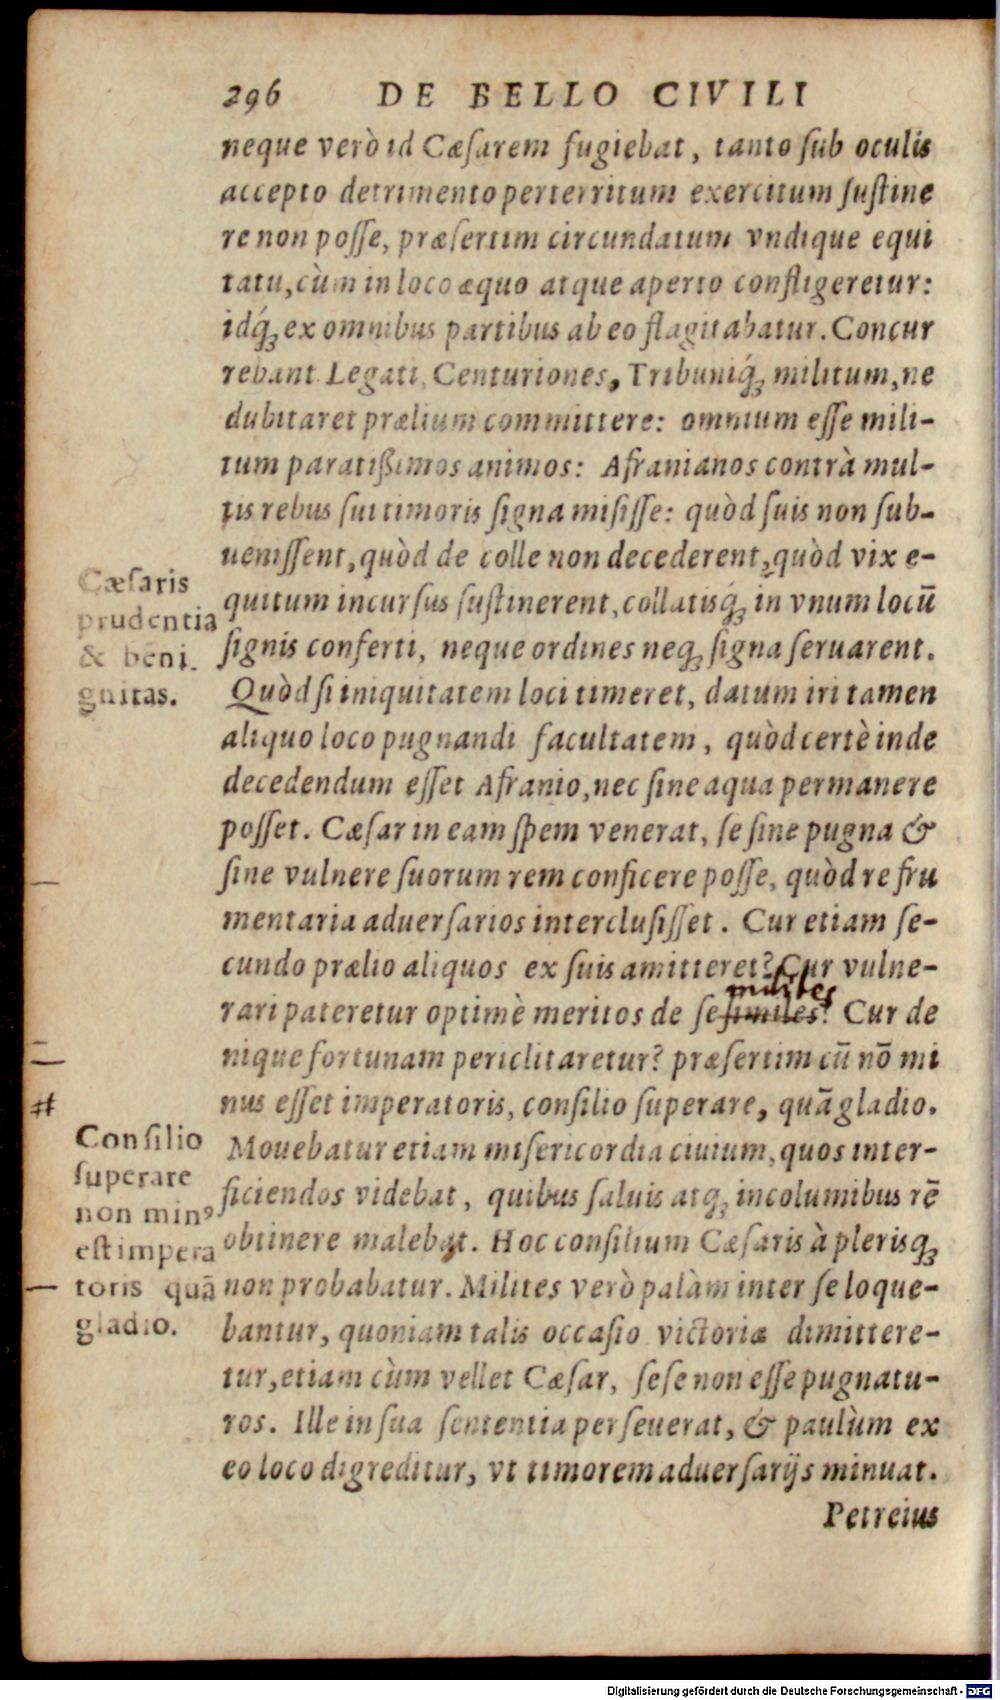 296 DE BELLO CIVILI
neque verò id Cæſarem fugiebat, tanto ſub oculis
accepto detrimento perterritum exercitum ſuſtine
re non poſſe, præſertim circundatum vndique equi
tatu, cùm in loco æquo atque aperto confligeretur:
idq́ꝫ ex omnibus partibus ab eo flagitabatur. Concur
rebant Legati, Centuriones, Tribuniq́ꝫ militum, ne
dubitaret prælium committere: omnium eſſe mili-
tum paratißimos animos: Afranianos contrà mul-
tis rebus ſui timoris ſigna miſiſſe: quòd ſuis non ſub-
ueniſſent, quòd de colle non decederent, quòd vix e-
quitum incurſus ſuſtinerent, collatisq́ꝫ in vnum locū
ſignis conferti, neque ordines neqꝫ ſigna ſeruarent.
Quòd ſi iniquitatem loci timeret, datum iri tamen
aliquo loco pugnandi facultatem, quòd certè inde
decedendum eſſet Afranio, nec ſine aqua permanere
poſſet. Cæſar in eam ſpem venerat, ſe ſine pugna &
ſine vulnere ſuorum rem conficere poſſe, quòd re fru
mentaria aduerſarios intercluſiſſet. Cur etiam ſe-
cundo prælio aliquos ex ſuis amitteret? Cur vulne-
milites
rari pateretur optimè meritos de ſe ſimiles? Cur de
nique fortunam periclitaretur? præſertim cū nō mi
nus eſſet imperatoris, conſilio ſuperare, quā gladio.
Mouebatur etiam miſericordia ciuium, quos inter-
ficiendos videbat, quibus ſaluis atqꝫ incolumibus rē
obtinere malebat. Hoc conſilium Cæſaris à plerisqꝫ
non probabatur. Milites verò palàm inter ſe loque-
bantur, quoniam talis occaſio victoriæ dimittere-
tur, etiam cùm vellet Cæſar, ſeſe non eſſe pugnatu-
ros. Ille in ſua ſententia perſeuerat, & paulùm ex
eo loco digreditur, vt timorem aduerſarijs minuat.
Petreius
Cæſaris
prudentia
& beni-
gnitas.
#
Conſilio
ſuperare
non minꝰ
eſt impera
toris quā
gladio.
Digitalisierung gefördert durch die Deutsche Forschungsgemeinschaft - DFG